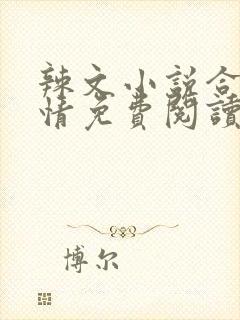 辣文小说合
情免費閱讀
博尔